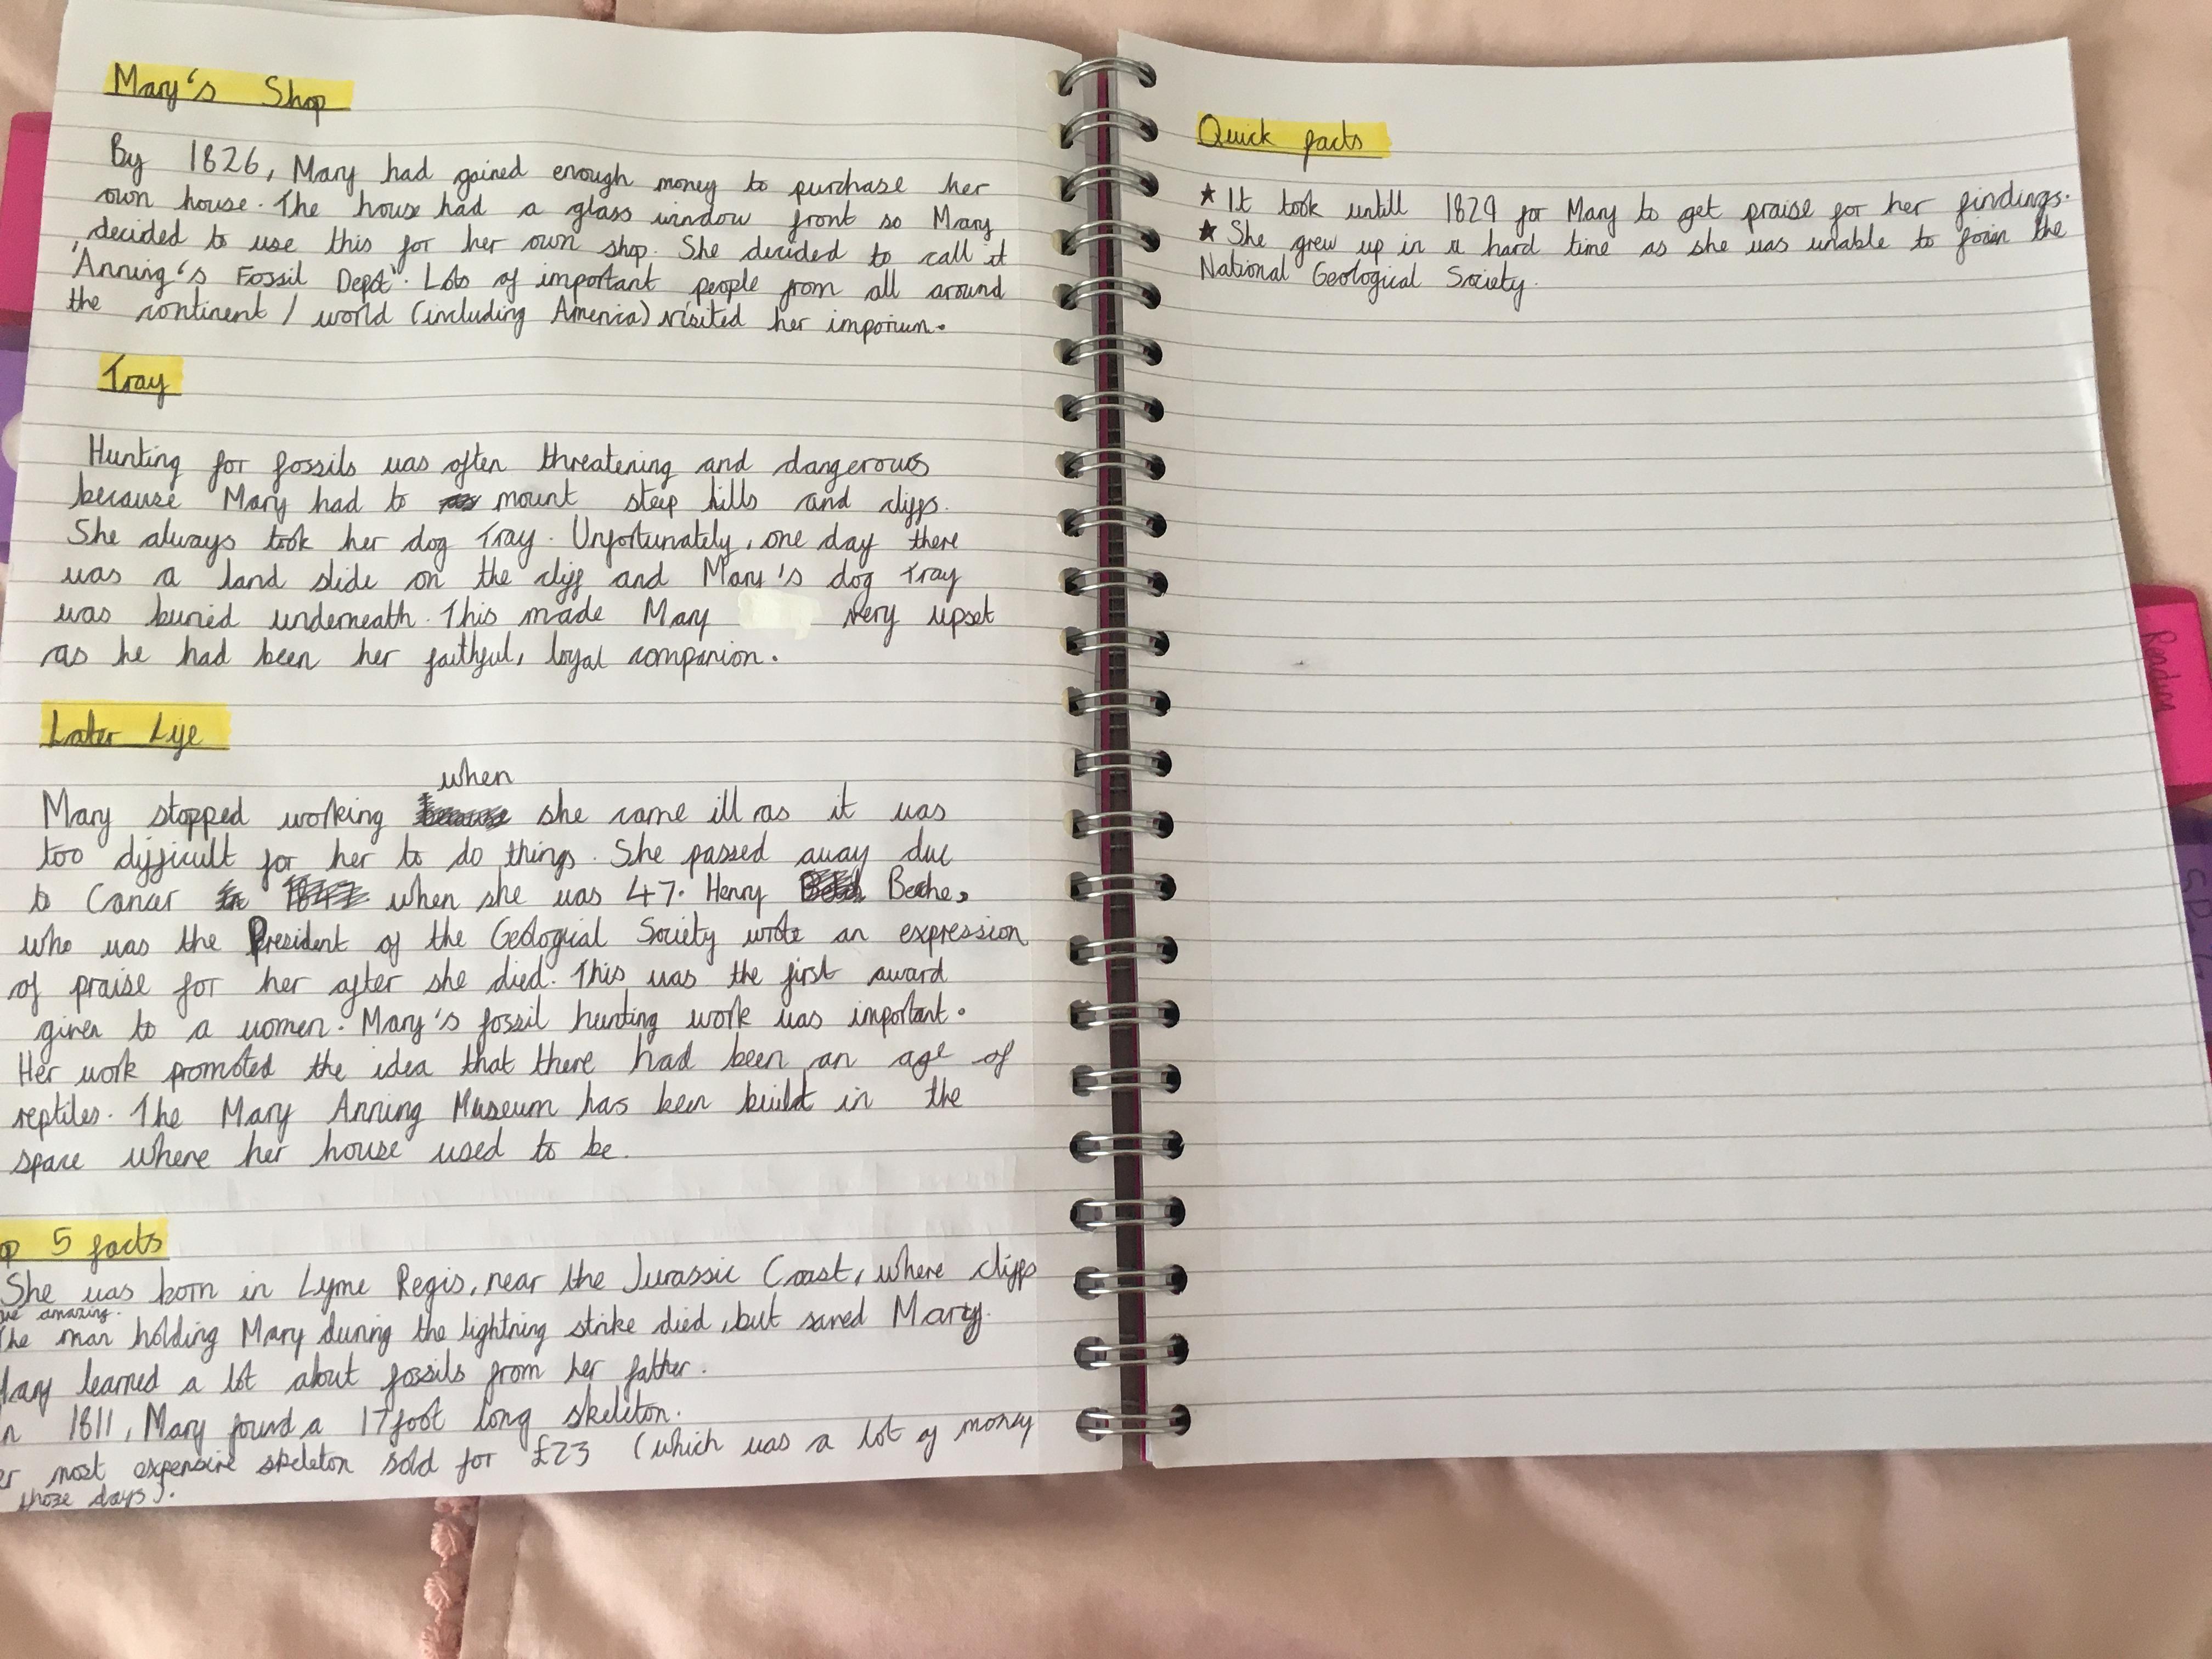 Mary's Shop
By 1826, Mary had gained enough money to purchase her
own house. The house had a glass window front so Mary
decided to use this for her own shop. She decided to call it
'Anning's Fossil Depot'. Lots of important people from all around
the continent / world (including America) visited her imporium.
Tray
Hunting for fossils was often threatening and dangerous
because Mary had to mount steep hills and cliffs.
She always took her dog Tray. Unfortunately, one day there
was a land slide on the cliff and Mary's dog Tray
was buried underneath. This made Mary very upset
as he had been her faithful, loyal companion.
Later Life
when
Mary stopped working because she came ill as it was
too difficult for her to do things. She passed away due
to Cancer in 1847 when she was 47. Henry Beche,
who was the President of the Geological Society wrote an expression
of praise for her after she died. This was the first award
given to a women. Mary's fossil hunting work was important.
Her work promoted the idea that there had been an age of
reptiles. The Mary Anning Museum has been build in the
space where her house used to be.
op 5 facts
She was born in Lyme Regis, near the Jurassic Coast, where cliffs
are amazing.
The man holding Mary during the lightning strike died, but saved Mary.
Mary learned a lot about fossils from her father.
n 1811, Mary found a 17 foot long skeleton.
er most expensive skeleton sold for £23 (which was a lot of money
those days).
Quick facts
★ It took untill 1829 for Mary to get praise for her findings.
★ She grew up in a hard time as she was unable to join the
National Geological Society.
Reading